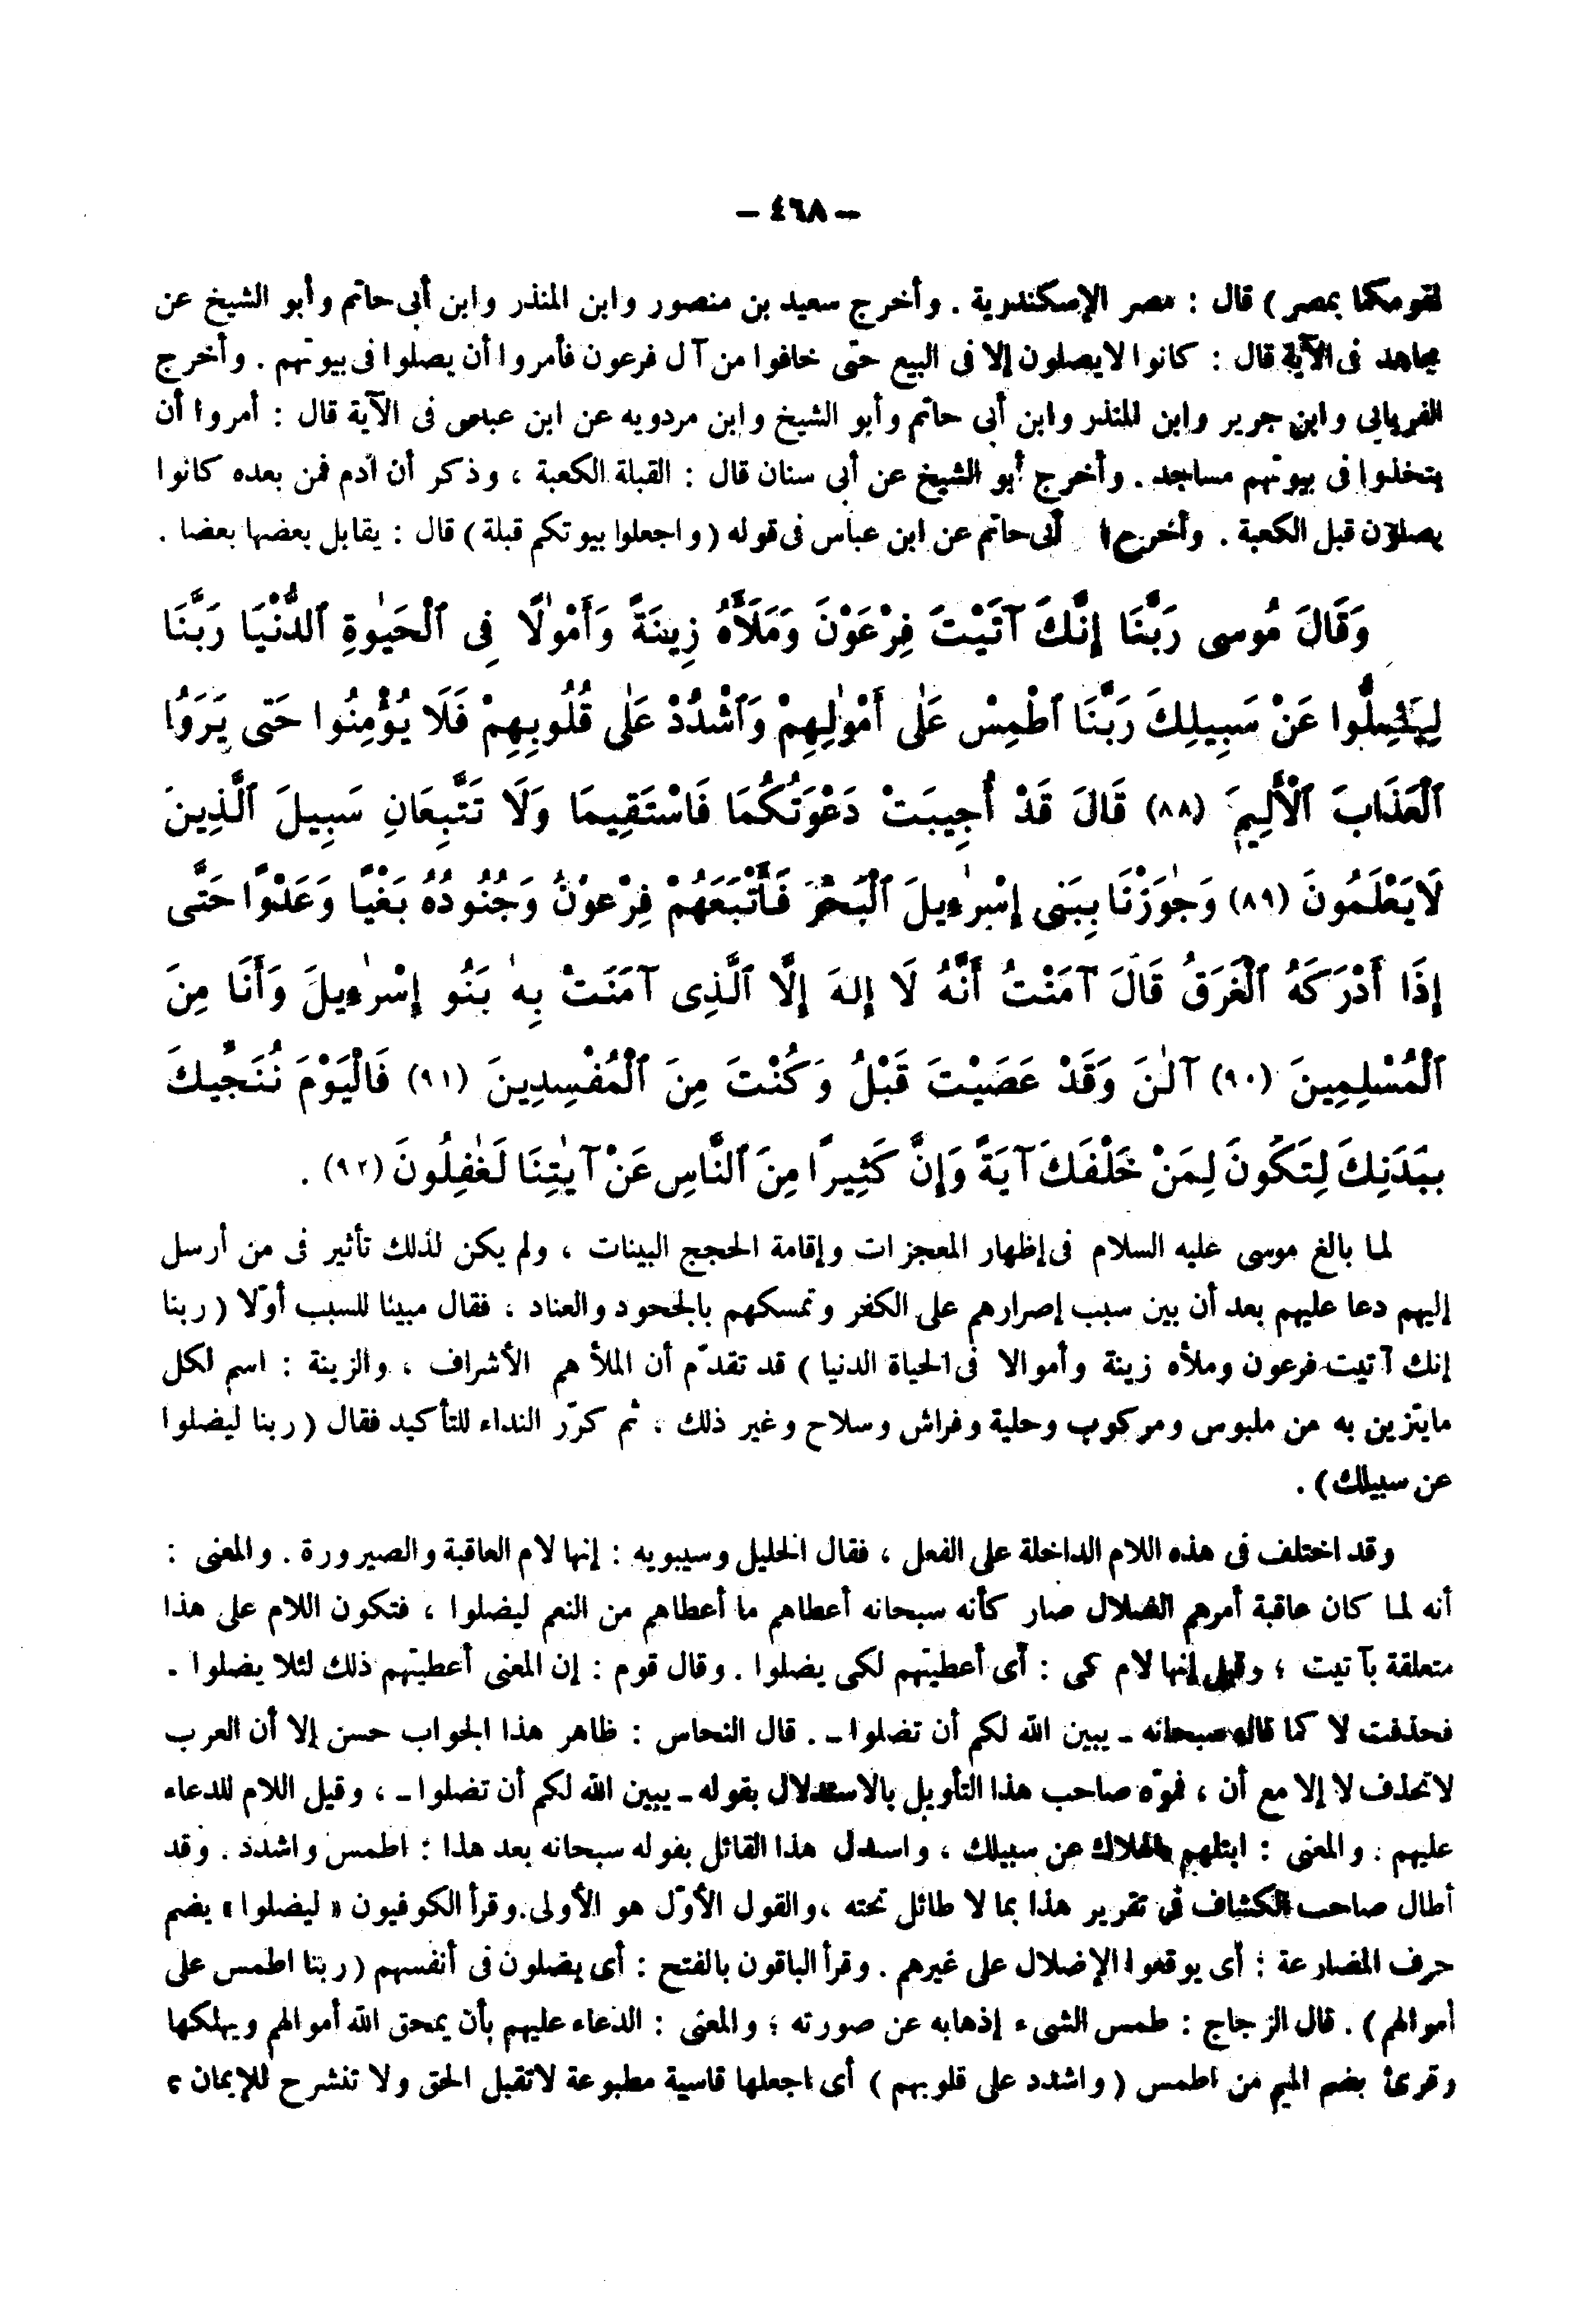 – ٤٦٨ –
لقومكما بمصر) قال : مصر الإسكندرية . وأخرج سعيد بن منصور وابن المنذر وابن أبى حاتم وأبو الشيخ عن
مجاهد فى الآية قال : كانوا لايصلون إلا فى البيع حتى خافوا من آل فرعون فأمروا أن يصلوا فى بيوتهم . وأخرج
الفريابى وابن جرير وابن المنذر وابن أبى حاتم وأبو الشيخ وابن مردويه عن ابن عباس فى الآية قال : أمروا أن
يتخذوا فى بيوتهم مساجد . وأخرج أبو الشيخ عن أبى سنان قال : القبلة الكعبة ، وذكر أن آدم فمن بعده كانوا
يصلون قبل الكعبة . وأخرج أبى حاتم عن ابن عباس فى قوله (واجعلوا بيوتكم قبلة) قال : يقابل بعضها بعضا .
وَقَالَ مُوسى رَبَّنَا إِنَّكَ آتَيْتَ فِرْعَوْنَ وَمَلَأَهُ زِينَةً وَأَمْوٰلًا فِى ٱلْحَيٰوةِ ٱلدُّنْيَا رَبَّنَا
لِيُضِلُّوا عَنْ سَبِيلِكَ رَبَّنَا ٱطْمِسْ عَلٰى أَمْوٰلِهِمْ وَٱشْدُدْ عَلٰى قُلُوبِهِمْ فَلَا يُؤْمِنُوا حَتى يَرَوُا
ٱلْعَذَابَ ٱلْأَلِيمَ (٨٨) قَالَ قَدْ أُجِيبَتْ دَعْوَتُكُمَا فَاسْتَقِيمَا وَلَا تَتَّبِعَانِ سَبِيلَ ٱلَّذِينَ
لَايَعْلَمُونَ (٨٩) وَجٰوَزْنَا بِبَنِى إِسْرٰءِيلَ ٱلْبَحْرَ فَأَتْبَعَهُمْ فِرْعَوْنُ وَجُنُودُهُ بَغْيًا وَعَدْوًا حَتَّى
إِذَا أَدْرَكَهُ ٱلْغَرَقُ قَالَ آمَنْتُ أَنَّهُ لَا إِلهَ إِلَّا ٱلَّذِى آمَنَتْ بِهِ بَنُو إِسْرٰءِيلَ وَأَنَا مِنَ
ٱلْمُسْلِمِينَ (٩٠) آلٰنَ وَقَدْ عَصَيْتَ قَبْلُ وَكُنْتَ مِنَ ٱلْمُفْسِدِينَ (٩١) فَالْيَوْمَ نُنَجِّيكَ
بِبَدَنِكَ لِتَكُونَ لِمَنْ خَلْفَكَ آيَةً وَإِنَّ كَثِيرًا مِنَ ٱلنَّاسِ عَنْ آيٰتِنَا لَغٰفِلُونَ (٩٢) .
لما بالغ موسى عليه السلام فى إظهار المعجزات وإقامة الحجج البينات ، ولم يكن لذلك تأثير فى من أرسل
إليهم دعا عليهم بعد أن بين سبب إصرارهم على الكفر وتمسكهم بالجحود والعناد ، فقال مبينا للسبب أوّلا (ربنا
إنك آتيت فرعون وملأه زينة وأموالا فى الحياة الدنيا) قد تقدّم أن الملأ هم الأشراف ، والزينة : اسم لكل
مايتزين به من ملبوس ومركوب وحلية وفراش وسلاح وغير ذلك ، ثم كرّر النداء للتأكيد فقال (ربنا ليضلوا
عن سبيلك) .
وقد اختلف فى هذه اللام الداخلة على الفعل ، فقال الخليل وسيبويه : إنها لام العاقبة والصيرورة . والمعنى :
أنه لما كان عاقبة أمرهم الضلال صار كأنه سبحانه أعطاهم ما أعطاهم من النعم ليضلوا ، فتكون اللام على هذا
متعلقة بآتيت ؛ وقيل إنها لام كى : أى أعطيتهم لكى يضلوا . وقال قوم : إن المعنى أعطيتهم ذلك لئلا يضلوا .
فحذفت لا كما قال سبحانه ـ يبين الله لكم أن تضلوا ـ . قال النحاس : ظاهر هذا الجواب حسن إلا أن العرب
لاتحذف لا إلا مع أن ، فموّه صاحب هذا التأويل بالاستدلال بقوله ـ يبين الله لكم أن تضلوا ـ ، وقيل اللام للدعاء
عليهم . والمعنى : ابتلهم بالهلاك عن سبيلك ، واستدل هذا القائل بقوله سبحانه بعد هذا : اطمس واشدد . وقد
أطال صاحب الكشاف فى تقرير هذا بما لا طائل تحته ، والقول الأوّل هو الأولى. وقرأ الكوفيون « ليضلوا » بضم
حرف المضارعة : أى يوقعوا الإضلال على غيرهم . وقرأ الباقون بالفتح : أى يضلون فى أنفسهم (ربنا اطمس على
أموالهم) . قال الزجاج : طمس الشىء إذهابه عن صورته ؛ والمعنى : الدعاء عليهم بأن يمحق الله أموالهم ويهلكها
وقرئ بضم الميم من اطمس (واشدد على قلوبهم) أى اجعلها قاسية مطبوعة لاتقبل الحق ولا تنشرح للإيمان ،